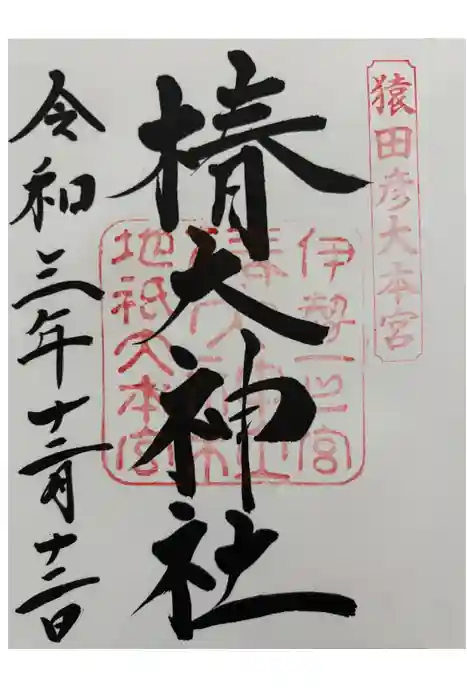 猿田彦大本宮
椿大神社
伊勢一之宮
地祇大本宮
令和三年十二月十二日